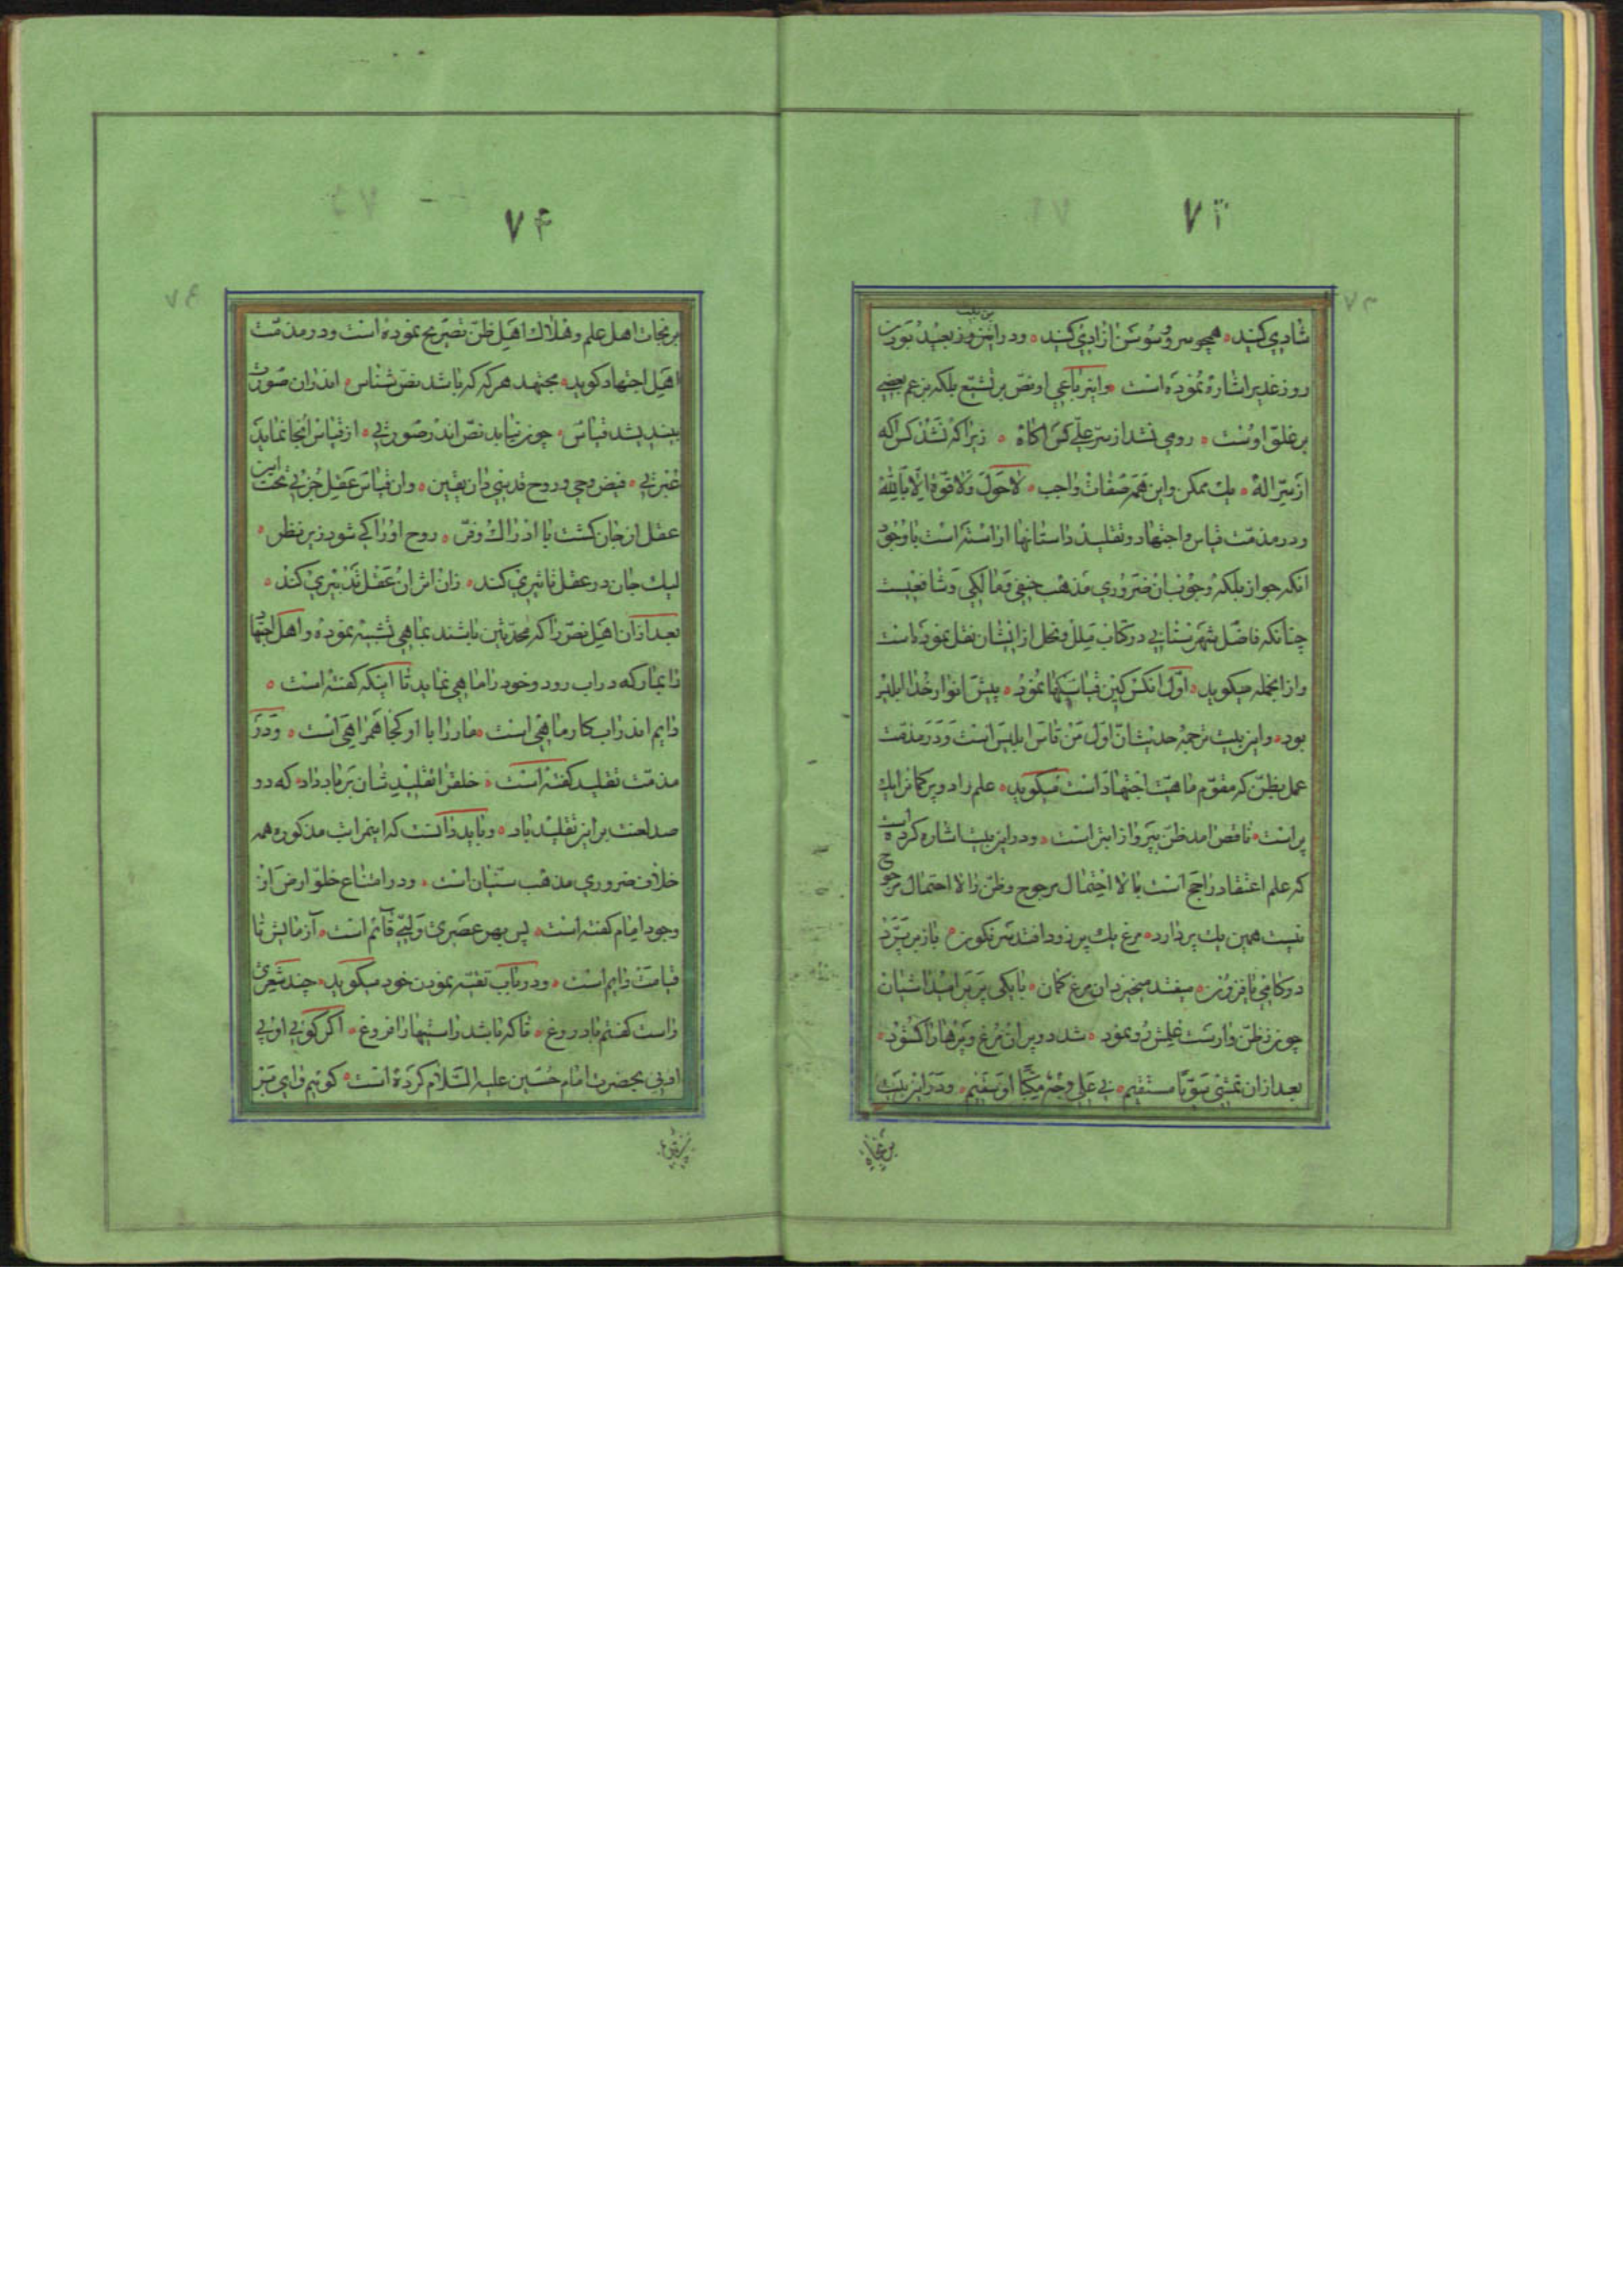 ۷۳
شادی کنید همچو سرو و سوسن ازادی کنید ودراین بیت بعید بودن
روز غدیر اشاره نموده است واین رباعی او نص بر تشیع بلکه بزعم بعضی
بر غلو اوست رومی نشد از سر علی کس اکاه زیرا که نشد کس اکه
از سر اله یك ممکن واین همه صفات واجب لا حول ولا قوة الا بالله
ودر مذمت قیاس واجتهاد وتقلید داستانها اراسته است با وجود
انکه جواز بلکه وجوب ان ضروری مذهب حنفی ومالکی وشافعیست
چنانکه فاضل شهرستانی در کتاب ملل ونحل از ایشان نقل نموده است
وازانجمله میکوید اول انکس کین قیاسکها نمود پیش انوار خدا ابلیس
بود واین بیت ترجمه حدیث ان اول من قاس ابلیس است ودر مذمت
عمل بظن که مقوم ماهیت اجتهاد است میکوید علم را دو پر کمانرا یك
پر است ناقص امد ظن بپرواز ابتر است ودر این بیت اشاره کرده است
که علم اعتقاد راجح است بلا احتمال مرجوح وظن را لا احتمال مرجوح
نیست همین یك پر دارد مرغ یك پر زود افتد سرنکون باز بر پرد
دو کامی یا فزون میفتد میخیزد ان مرغ کمان با یکی پر بر امید اشیان
چون ز ظن وارست علمش رو نمود شد دو پر ان مرغ وپرها را کشود
بعد ازان تمشی سویا مستقیم نی علی وجه مکبا او سقیم ودر این بیت
بر نجات
۷۴
بر نجات اهل علم وهلاك اهل ظن تصریح نموده است ودر مذمت
اهل اجتهاد کوید مجتهد هر که که باشد نص شناس اندران صورت
نیندیشد قیاس چون نیابد نص اندر صورتی از قیاس انجا نماید
عبرتی فیض وحی وروح قدسی دان یقین وان قیاس عقل جزئی تحت این
عقل از جان کشت با ادراك وفر روح او را کی شود زیر نظر
لیك جان در عقل تاثیری کند زان اثر ان عقل تدبیری کند
بعد ازان اهل نص را که محدثین باشند بماهی تشبیه نموده واهل اجتهاد
را بمار که در اب رود وخود را ماهی نماید تا اینکه کفته است
دایم اندر اب کار ماهی است مار را با او کجا همراهی است ودر
مذمت تقلید کفته است خلق را تقلید شان بر باد داد که دو
صد لعنت بر این تقلید باد وباید دانست که این مراتب مذکوره همه
خلاف ضروری مذهب سنیان است ودر امتناع خلو ارض از
وجود امام کفته است پس بهر عصری ولیی قائم است آزمایش تا
قیامت دایم است ودر باب تقیه نمودن خود میکوید چند شعری
راست کفتم با دروغ تا که باشد راستیها را فروغ اکر کوئی او بی
ادبی بحضرت امام حسین علیه السلام کرده است کوئیم وای بر